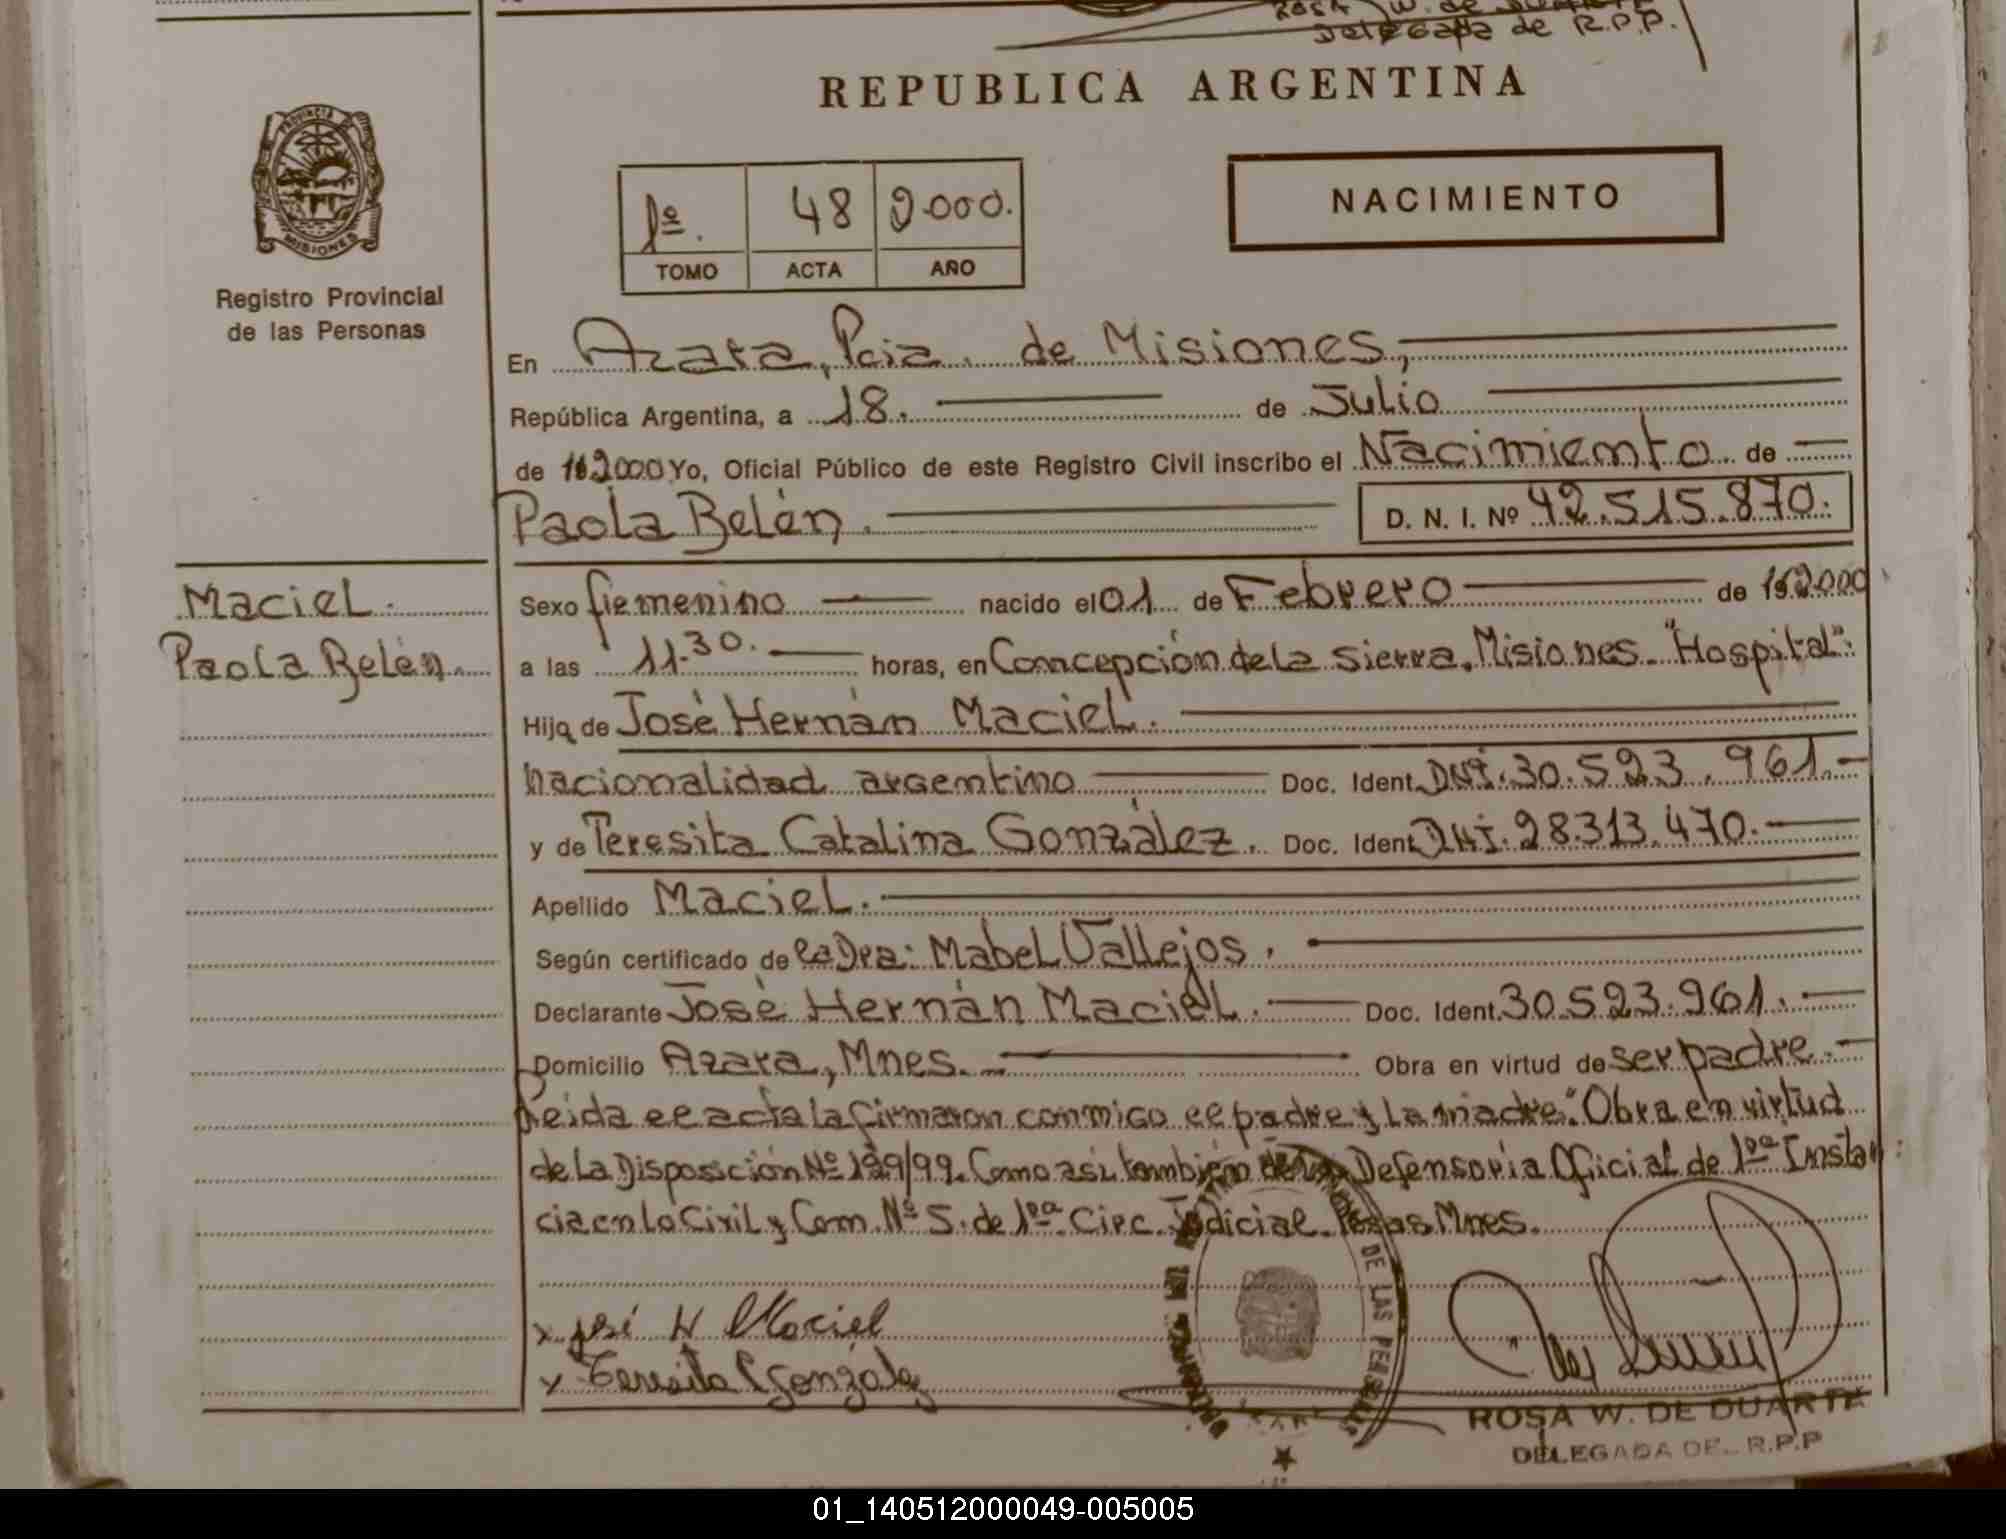 Rosa W. de Duarte
Delegada de R.P.P.
REPUBLICA ARGENTINA
PROVINCIA DE
MISIONES
Registro Provincial
de las Personas
1º. 48 2000.
TOMO ACTA AÑO
NACIMIENTO
En Azara, Pcia. de Misiones,
República Argentina, a 18. de Julio
de 2000 Yo, Oficial Público de este Registro Civil inscribo el Nacimiento de
Paola Belén. D. N. I. Nº 42.515.870.
Maciel.
Paola Belén.
Sexo femenino nacido el 01 de Febrero de 2000
a las 11.30. horas, en Concepción de la Sierra, Misiones. "Hospital".
Hija de José Hernán Maciel.
nacionalidad argentino Doc. Ident. DNI. 30.523.961.-
y de Teresita Catalina González. Doc. Ident. DNI. 28.313.470.
Apellido Maciel.
Según certificado de la Dra: Mabel Vallejos.
Declarante José Hernán Maciel. Doc. Ident. 30.523.961.
Domicilio Azara, Mnes. Obra en virtud de ser padre.
Leida el acta la firmaron conmigo el padre y la madre." Obra en virtud
de la Disposición Nº /99. Como asi también de la Defensoría Oficial de 1ra Instan
cia en lo Civil y Com. Nº 5. de 1ra. Circ. Judicial. Mnes.
x José H Maciel
x Teresita C González
DE LAS PERSONAS
ROSA W. DE DUARTE
DELEGADA DEL R.P.P
01_140512000049-005005